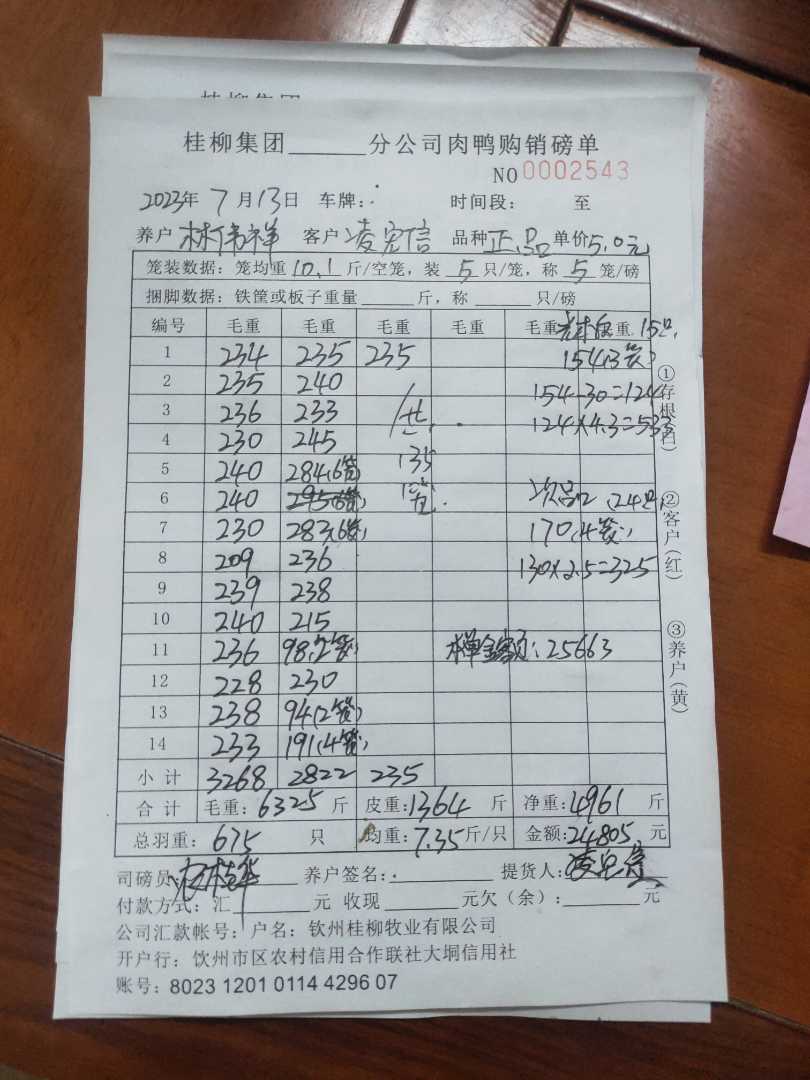 桂柳集团______分公司肉鸭购销磅单
NO 0002543
2023年 7月13日 车牌: 时间段: 至
养户 林伟祥 客户 凌宪信 品种 正品 单价 5.0元
笼装数据: 笼均重 10.1 斤/空笼, 装 5 只/笼, 称 5 笼/磅
捆脚数据: 铁筐或板子重量______斤, 称______只/磅
编号 毛重 毛重 毛重 毛重 毛重 毛重 15只
1 234 235 235 154(3笼)
2 235 240 154-30=124
3 236 233 共 124×4.3=533
4 230 245
5 240 284(6笼) 135
6 240 295(6笼) 笼 次品 (24只)
7 230 283(6笼) 170(4笼)
8 209 236 130×2.5=325
9 239 238
10 240 215
11 236 98(2笼) 本单金额: 25663
12 228 230
13 238 94(2笼)
14 233 191(4笼)
小计 3268 2822 235
合计 毛重: 6325 斤 皮重: 1364 斤 净重: 4961 斤
总羽重: 675 只 均重: 7.35 斤/只 金额: 24805 元
司磅员: 养户签名: 提货人:
付款方式: 汇______元 收现______元欠(余):______元
公司汇款帐号: 户名: 钦州桂柳牧业有限公司
开户行: 饮州市区农村信用合作联社大垌信用社
账号: 8023 1201 0114 4296 07
①存根(白)
②客户(红)
③养户(黄)
桂柳集团